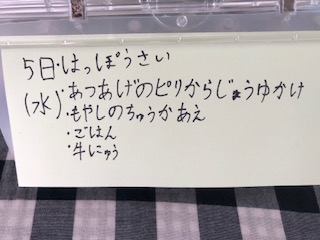 5日・はっぽうさい
(水)・あつあげのピリからじょうゆかけ
・もやしのちゅうかあえ
・ごはん
・牛にゅう